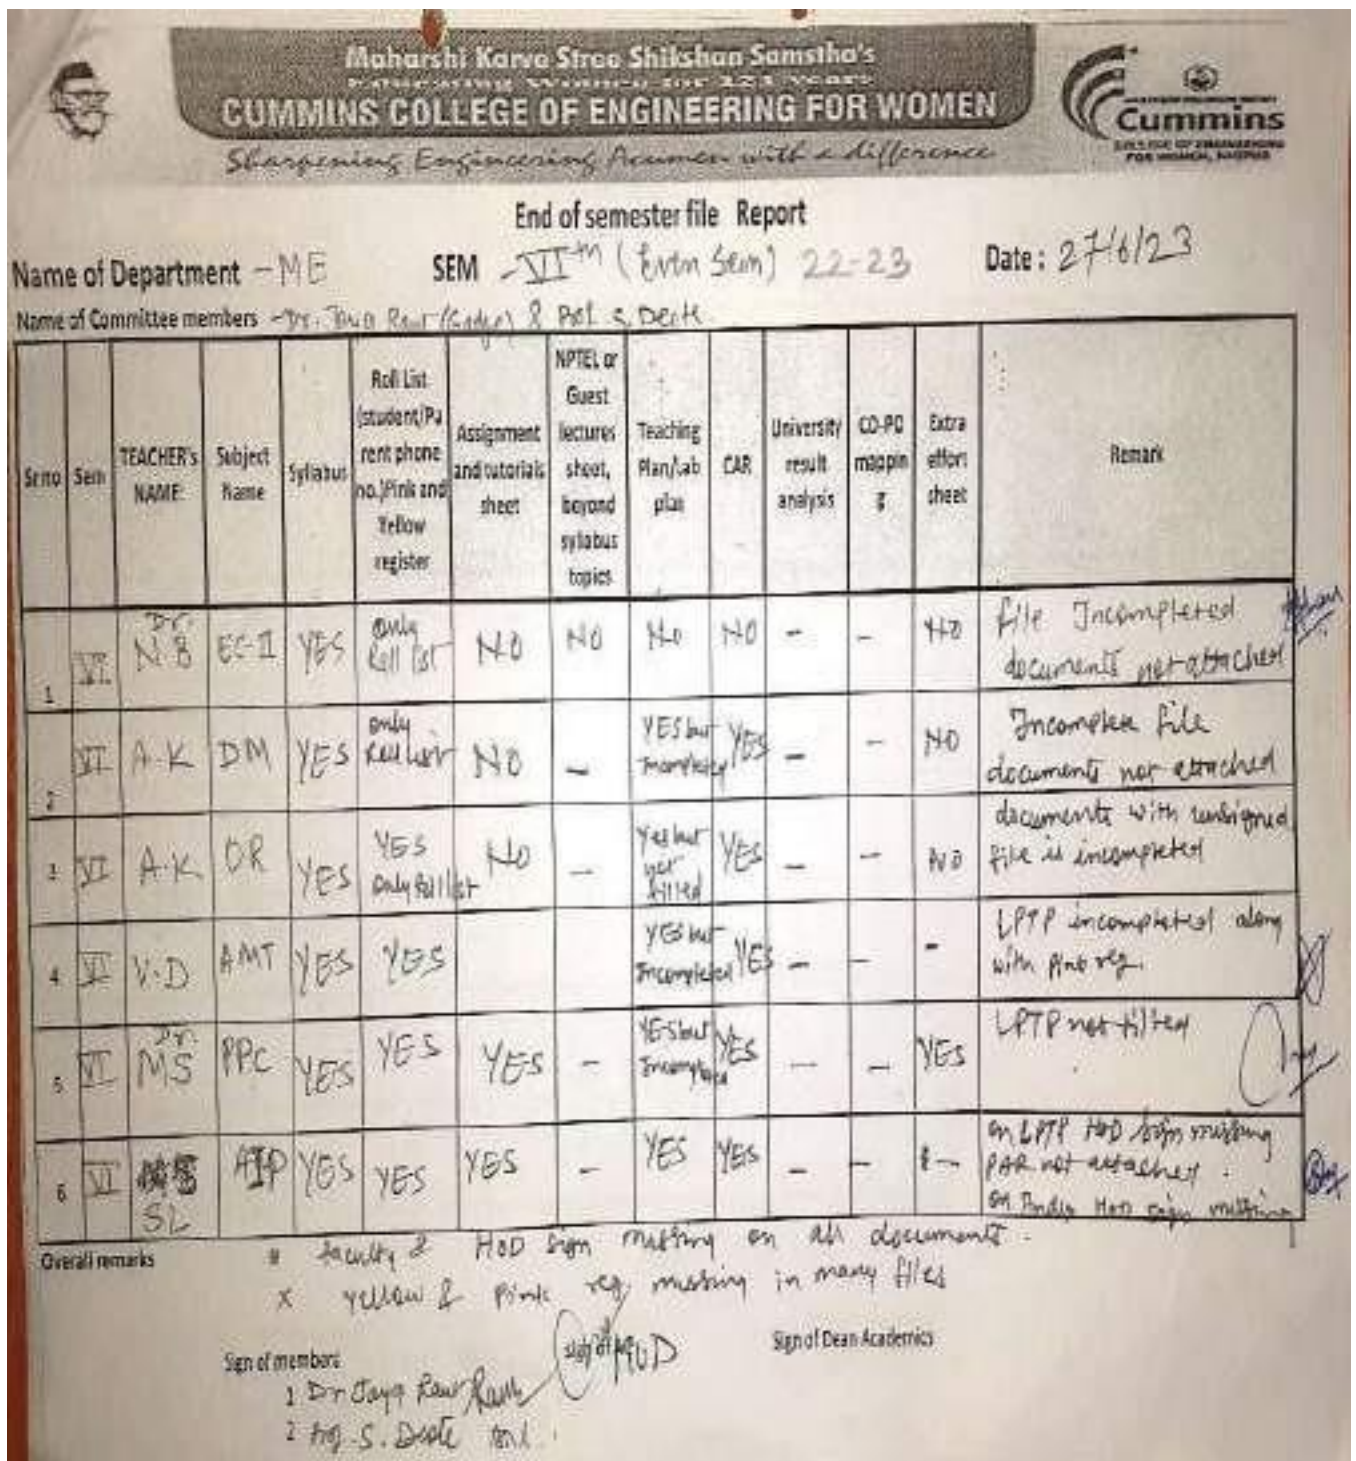 Maharshi Karve Stree Shikshan Samstha's
CUMMINS COLLEGE OF ENGINEERING FOR WOMEN
Sharpening Engineering Acumen with a difference
Cummins
COLLEGE OF ENGINEERING
FOR WOMEN, NAGPUR
End of semester file Report
Name of Department - ME SEM - VIth (Even Sem) 22-23 Date : 27/6/23
Name of Committee members - Dr. Raut & Prof. S. Deote
Sr no Sem TEACHER's NAME: Subject Name Syllabus Roll List (student/Parent phone no.)Pink and Yellow register Assignment and tutorials sheet NPTEL or Guest lectures sheet, beyond syllabus topics Teaching Plan/Lab plan CAR University result analysis CO-PO mapping Extra effort sheet Remark
1 VI Dr. N B EC-II YES Only Roll list NO NO No NO - - NO file Incompleted documents not attached
2 VI A-K DM YES only Roll list NO - YES but Incompleted YES - - NO Incomplete file documents not attached
3 VI A-K OR YES YES Only Roll list NO - Yes but not filled YES - - NO documents with unsigned file is incompleted
4 VI V-D AMT YES YES YES but Incompleted YES - - - LPTP incompleted along with Pink reg.
5 VI Dr. MS PPC YES YES YES - YES but Incompleted YES - - YES LPTP not filled
6 VI SL AIP YES YES YES - YES YES - - - on LPTP HOD sign missing PAR not attached. on HOD sign missing
Overall remarks * faculty & HOD sign missing on all documents.
x yellow & Pink reg. missing in many files
Sign of members Sign of HOD Sign of Dean Academics
1 Dr Jaya Raut
2 Prof. S. Deote